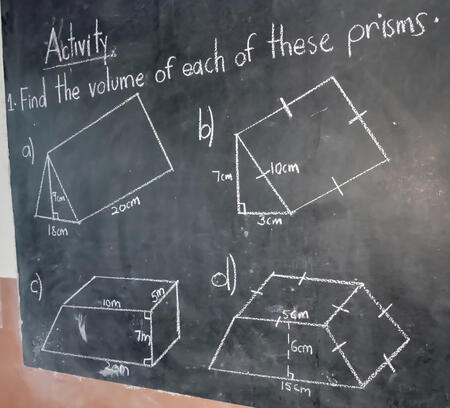 Activity.
1. Find the volume of each of these prisms.
a)
9cm
18cm
20cm
b)
7cm
10cm
3cm
c)
10m
5m
7m
d)
6cm
15cm